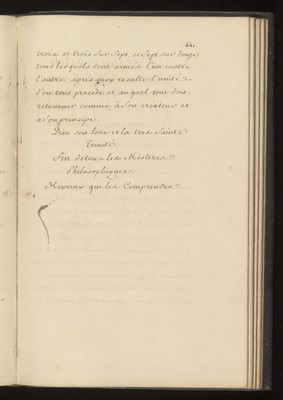 441.
trois et trois sur sept, et sept sur douze
tous lesquels sont armés l'un contre
l'autre après quoy resulte l'unité
d'ou tout procede et auquel tout doit
retourner comme à son créateur et
à son principe.
Dieu soit loüé et la tres Sainte
Trinité
Fin de tous les Misteres
Philosophiques
Heureux qui les Comprendra